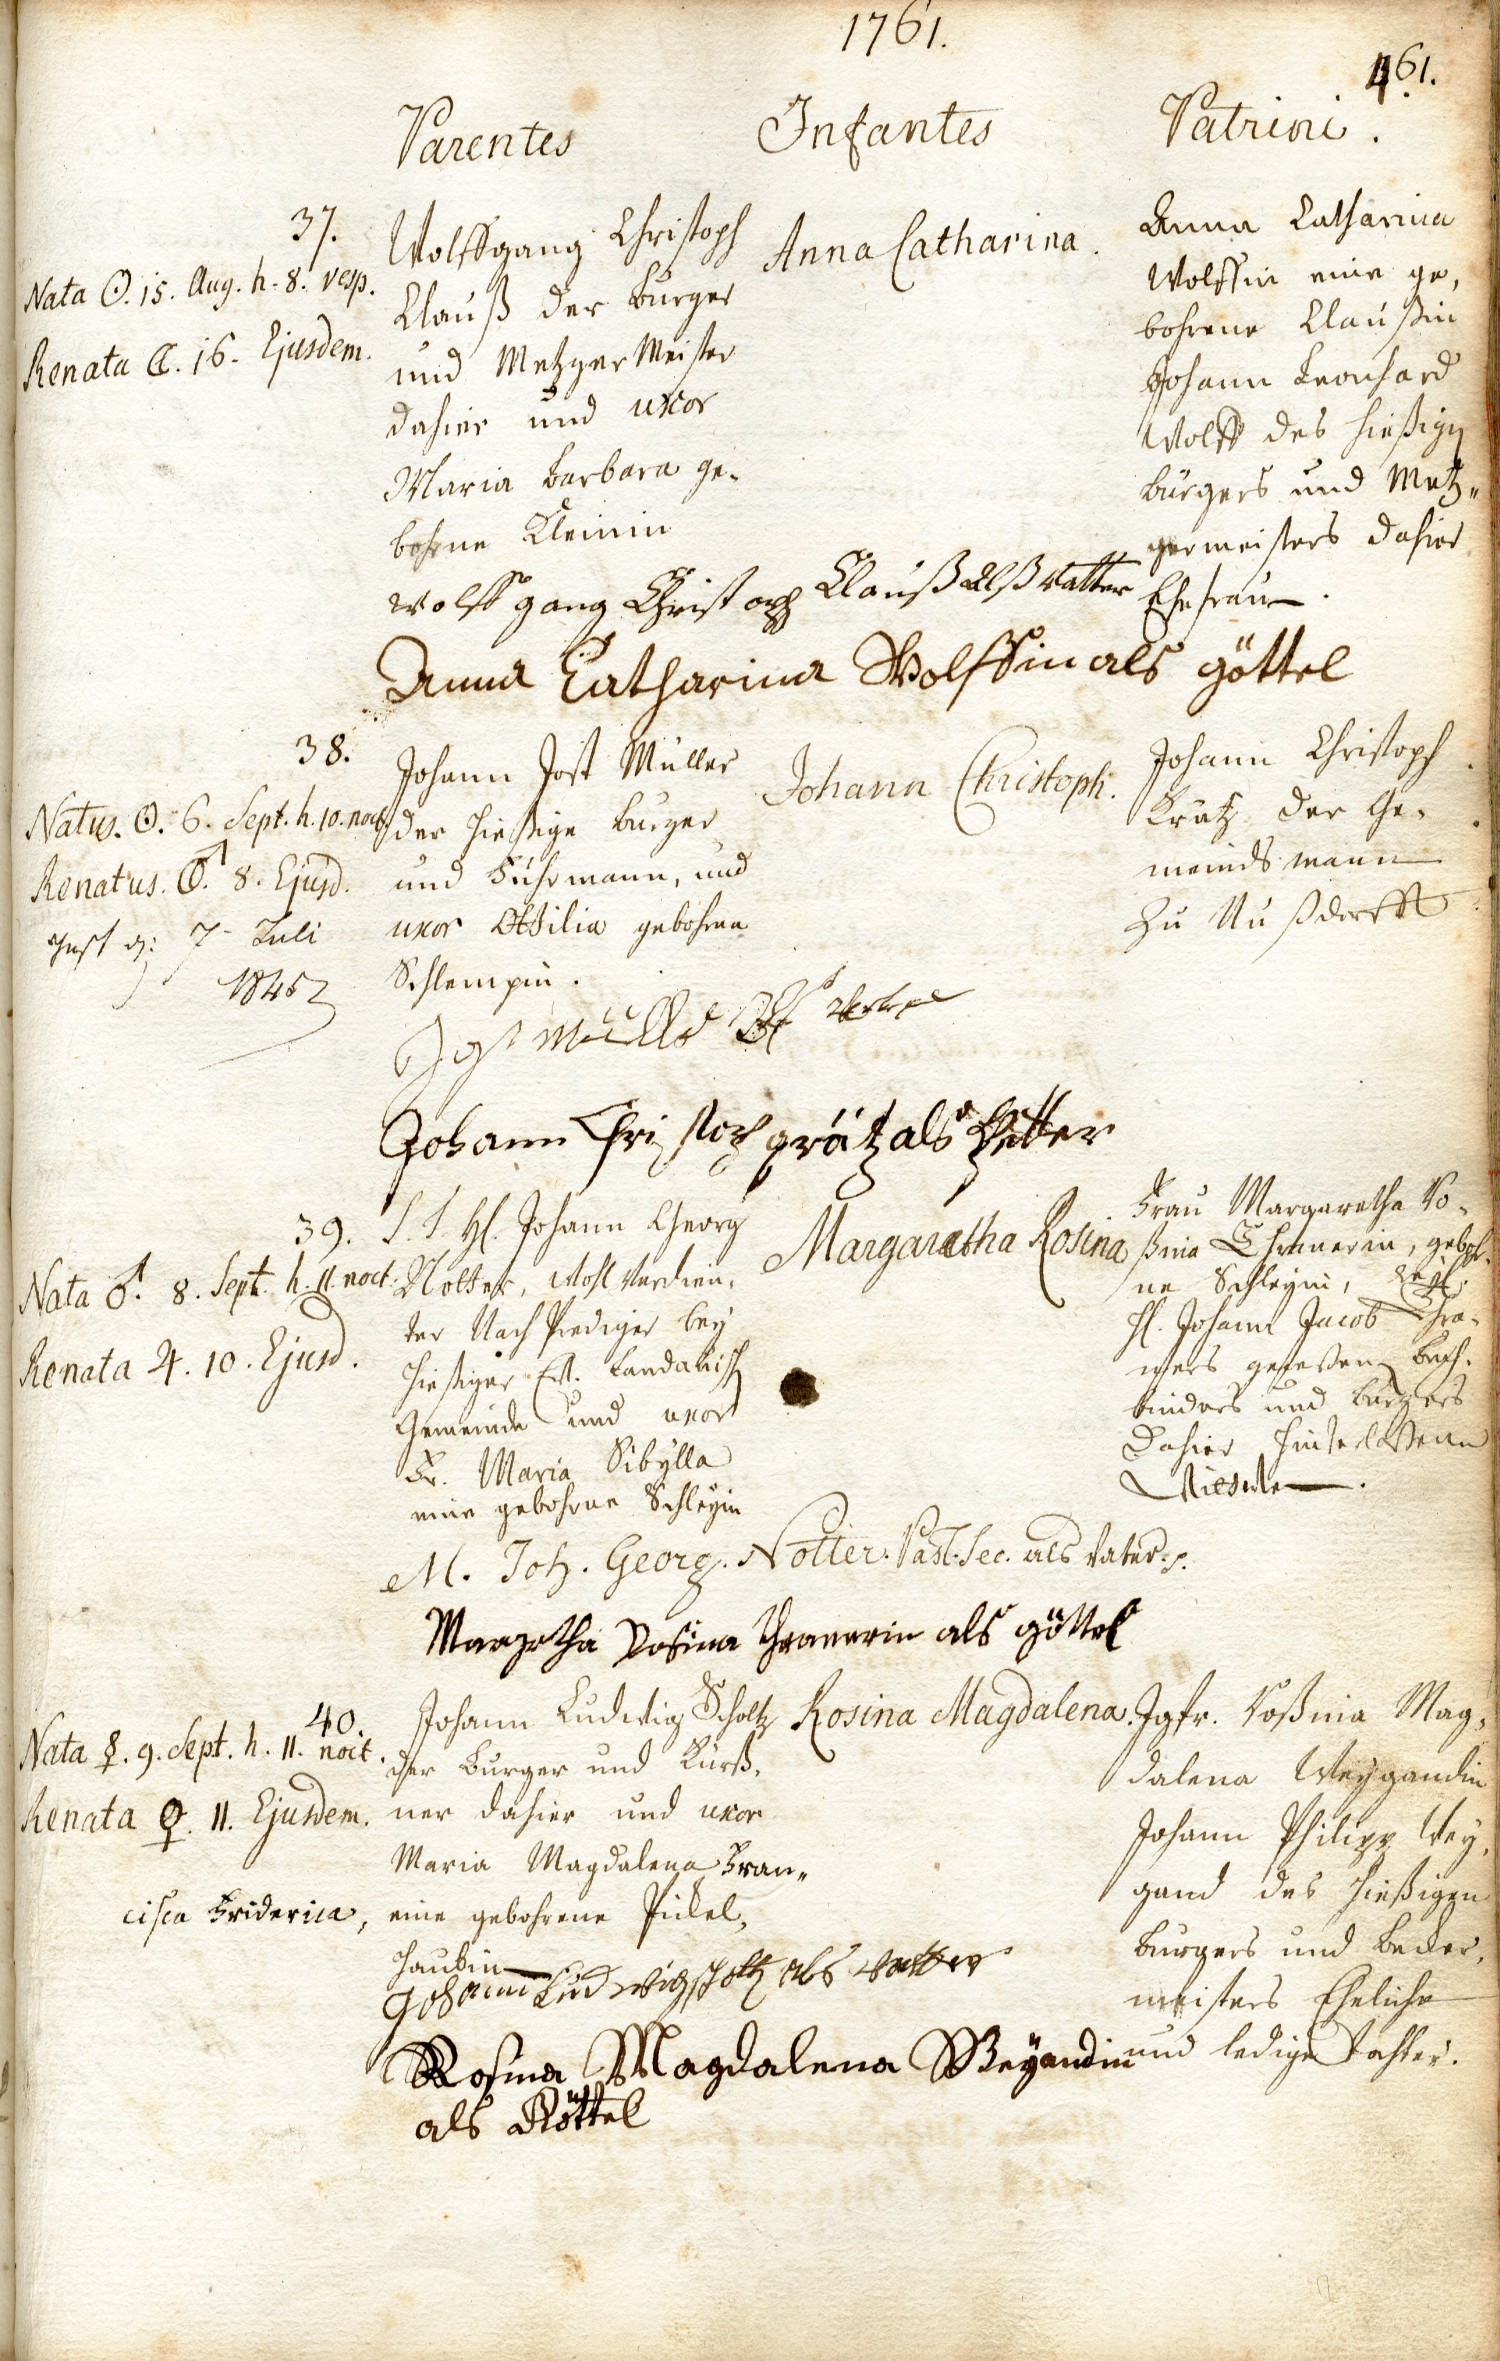 1761.
461.
Parentes
Infantes
Patrini.
37.
Nata ☉. 15. Aug. h. 8. vesp.
Renata ☾. 16. Ejusdem.
Wolffgang Christoph
Clauß der Burger
und Metzger Meister
dahier und uxor
Maria Barbara ge-
bohrne Kleinin
Anna Catharina.
Anna Catharina
Wolffin eine ge,
bohrene Claußin
Johann Leonhard
Wolff des hießigen
burgers und Metz,,
germeisters dahier
Ehefrau.
Wolff gang Christoph Clauß alß vatter
Anna Catharina Wolffin als göttel
38.
Natus. ☉. 6. Sept. h. 10. noct.
Renatus. ♂. 8. Ejusd.
7 Juli
1845
Johann Jost Müller
der hießige burger
und Fuhrmann, und
uxor Ottilia gebohrne
Schlempin.
Johann Christoph.
Johann Christoph
Krätz der Ge-
meinds mann
zu Nußdorff
Jost Müller als vatter
Johann Christoph grätz als Petter
39.
Nata ♂. 8. Sept. h. 11. noct.
Renata ♃. 10. Ejusd.
S. T. H. Johann Georg
Notter, wohl verdien,
ter Nach Prediger bey
hießiger Ev. Landauisch
Gemeinde und uxor
Fr. Maria Sibylla
eine gebohrne Schleyin
Margaretha Rosina
Frau Margaretha Ro-
ßina Thranerin, geboh-
ne Schleyin,
H. Johann Jacob Thra-
ners geweßenen buch-
binders und burgers
dahier hinterlaßene
Wittwe.
M. Joh. Georg. Notter. Past. Sec. als Vater.
Margretha Rosina Thranerin als göttel
40.
Nata ☿. 9. Sept. h. 11. noct.
Renata ♀. 11. Ejusdem.
Johann Ludwig Scholtz
der burger und Kürß,
ner dahier und uxor
Maria Magdalena Fran,,
cisca Friderica, eine gebohrene Pickel,
haubin
Rosina Magdalena.
Jgfr. Roßina Mag,
dalena Weygandin
Johann Philipp Wey,
gand des hießigen
burgers und becker,
meisters Eheliche
und ledige Tochter.
Johann Ludwig scholtz als vatter
Rosina Magdalena Weyandin
als Göttel